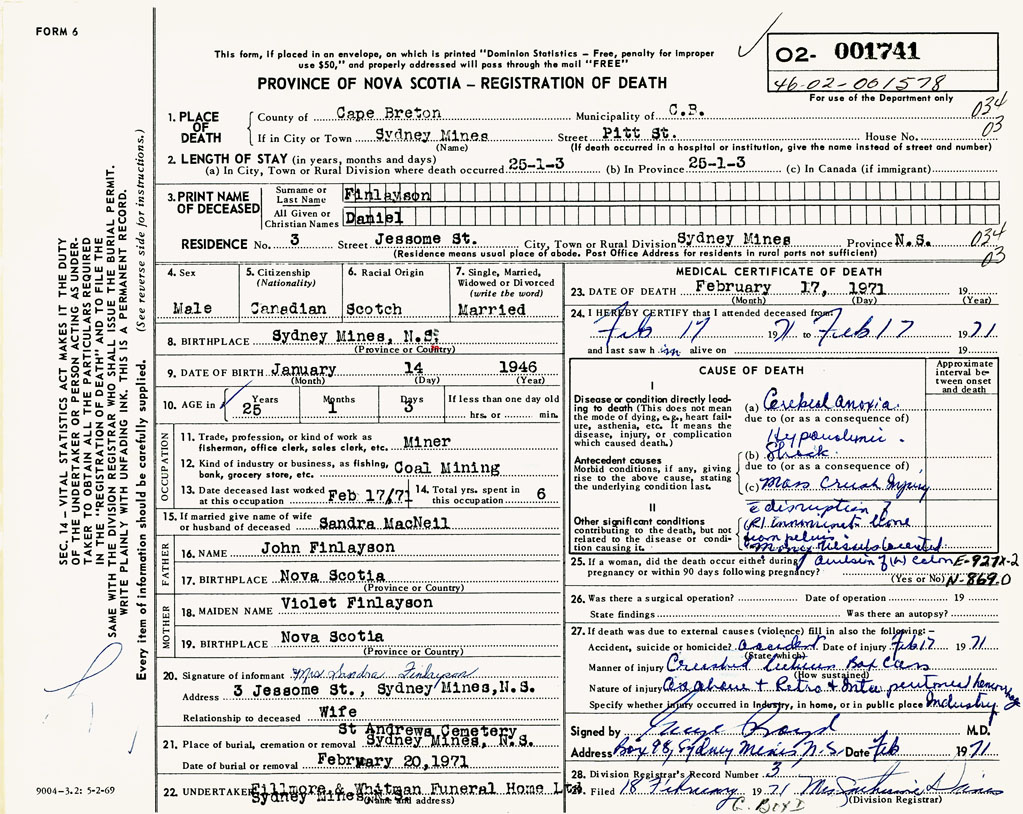 FORM 6
This form, if placed in an envelope, on which is printed "Dominion Statistics – Free, penalty for improper
use $50," and properly addressed will pass through the mail "FREE"
PROVINCE OF NOVA SCOTIA – REGISTRATION OF DEATH
02- 001741
46-02-001578
For use of the Department only
034
03
1. PLACE OF DEATH
County of Cape Breton Municipality of C.B.
If in City or Town Sydney Mines Street Pitt St. House No.
(Name) (If death occurred in a hospital or institution, give the name instead of street and number)
2. LENGTH OF STAY (in years, months and days)
(a) In City, Town or Rural Division where death occurred 25-1-3 (b) In Province 25-1-3 (c) In Canada (if immigrant)
3. PRINT NAME OF DECEASED
Surname or Last Name Finlayson
All Given or Christian Names Daniel
RESIDENCE No. 3 Street Jessome St. City, Town or Rural Division Sydney Mines Province N.S.
034
03
(Residence means usual place of abode. Post Office Address for residents in rural ports not sufficient)
4. Sex
Male
5. Citizenship (Nationality)
Canadian
6. Racial Origin
Scotch
7. Single, Married, Widowed or Divorced (write the word)
Married
8. BIRTHPLACE Sydney Mines, N.S.
(Province or Country)
9. DATE OF BIRTH January 14 1946
(Month) (Day) (Year)
10. AGE in
Years 25
Months 1
Days 3
If less than one day old
hrs. or min.
OCCUPATION
11. Trade, profession, or kind of work as fisherman, office clerk, sales clerk, etc. Miner
12. Kind of industry or business, as fishing, bank, grocery store, etc. Coal Mining
13. Date deceased last worked at this occupation Feb 17/71
14. Total yrs. spent in this occupation 6
15. If married give name of wife or husband of deceased Sandra MacNeil
FATHER
16. NAME John Finlayson
17. BIRTHPLACE Nova Scotia
(Province or Country)
MOTHER
18. MAIDEN NAME Violet Finlayson
19. BIRTHPLACE Nova Scotia
(Province or Country)
20. Signature of informant Mrs Sandra Finlayson
Address 3 Jessome St., Sydney Mines, N.S.
Relationship to deceased Wife
21. Place of burial, cremation or removal St Andrews Cemetery
Sydney Mines, N.S.
Date of burial or removal February 20, 1971
22. UNDERTAKER Fillmore & Whitman Funeral Home Ltd
Sydney Mines
(Name and address)
MEDICAL CERTIFICATE OF DEATH
23. DATE OF DEATH February 17, 1971 19
(Month) (Day) (Year)
24. I HEREBY CERTIFY that I attended deceased from
Feb 17 1971 to Feb 17 1971
and last saw him alive on 19
CAUSE OF DEATH
Approximate interval between onset and death
I
Disease or condition directly leading to death (This does not mean the mode of dying, e.g., heart failure, asthenia, etc. It means the disease, injury, or complication which caused death.)
(a) Cerebral anoxia
due to (or as a consequence of)
Antecedent causes
Morbid conditions, if any, giving rise to the above cause, stating the underlying condition last.
Hypovolemic
(b) Shock
due to (or as a consequence of)
(c) Mass Crush Injury
II
Other significant conditions contributing to the death, but not related to the disease or condition causing it.
disruption of
(R) innominate bone
from pelvis
25. If a woman, did the death occur either during pregnancy or within 90 days following pregnancy?
(Yes or No)
E-927X-2
N-869.0
26. Was there a surgical operation? Date of operation 19
State findings Was there an autopsy?
27. If death was due to external causes (violence) fill in also the following: –
Accident, suicide or homicide? accident Date of injury Feb 17 1971
(State which)
Manner of injury Crushed between Box Cars
(How sustained)
Nature of injury As above + Retro + Intra peritoneal hemorrhage
Specify whether injury occurred in Industry, in home, or in public place Industry
Signed by Boyd M.D.
Address Box 98, Sydney Mines N.S Date Feb 1971
28. Division Registrar's Record Number 3
29. Filed 18 February 1971 Mrs
(Division Registrar)
G. BOYD
SEC. 14 – VITAL STATISTICS ACT MAKES IT THE DUTY
OF THE UNDERTAKER OR PERSON ACTING AS UNDER-
TAKER TO OBTAIN ALL THE PARTICULARS REQUIRED
IN THE "REGISTRATION OF DEATH" AND TO FILE THE
SAME WITH THE DIVISION REGISTRAR WHO SHALL ISSUE THE BURIAL PERMIT.
WRITE PLAINLY WITH UNFADING INK. THIS IS A PERMANENT RECORD.
Every item of information should be carefully supplied. (See reverse side for instructions.)
9004-3.2: 5-2-69